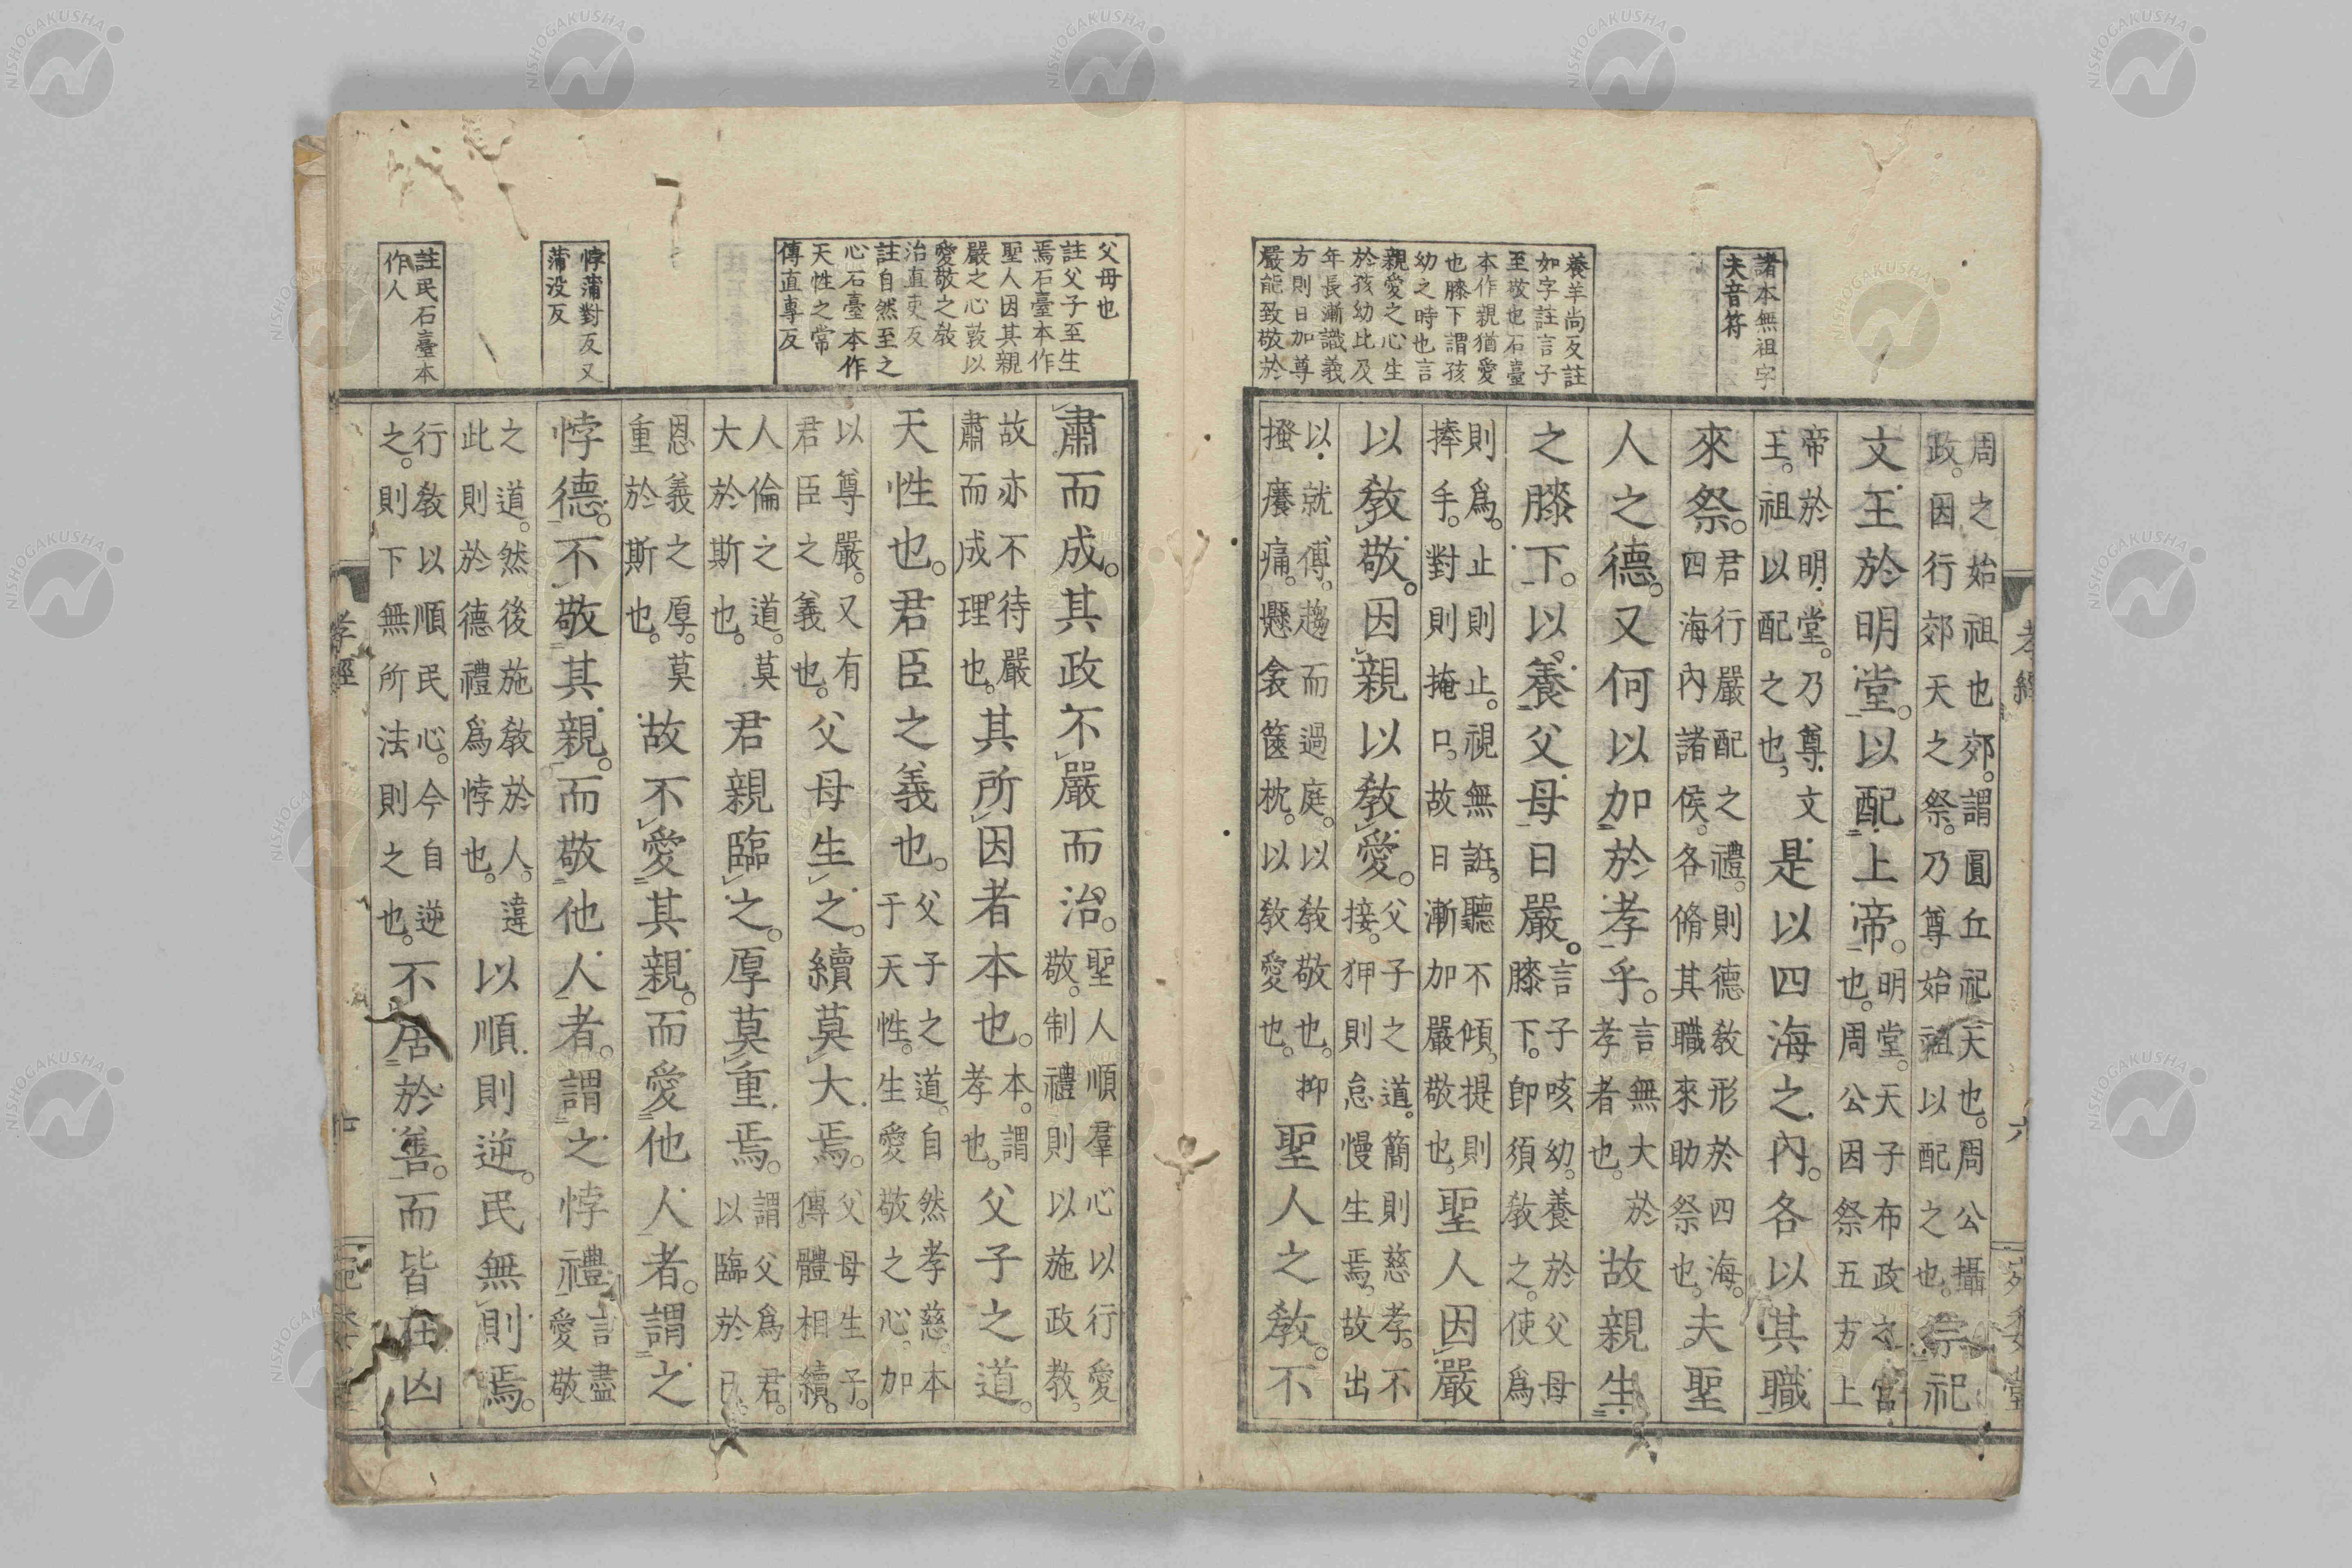 諸本無祖字
夫音符
養羊尚反註
如字註言子
至敬也石臺
本作親猶愛
也膝下謂孩
幼之時也言
親愛之心生
於孩幼比及
年長漸識義
方則日加尊
嚴能致敬於
周之始祖也郊。謂圓丘祀天也。周公攝政。因行郊天之祭。乃尊始祖以配之也。宗祀
文王於明堂。以配上帝。明堂。天子布政之宮也。周公因祭五方上
帝於明堂。乃尊文王。祖以配之也。是以四海之內。各以其職
來祭。君行嚴配之禮。則德敎形於四海。四海內諸侯。各脩其職來助祭也。夫聖
人之德。又何以加於孝乎。言無大於孝者也。故親生
之膝下。以養父母日嚴。言子咳幼。養於父母膝下。卽須敎之。使爲
則爲。止則止。視無誑。聽不傾。提則捧手。對則掩口。故日漸加嚴敬也。聖人因嚴
以敎敬。因親以敎愛。父子之道。簡則慈孝。不接。狎則怠慢生焉。故出
以就傅。趨而過庭。以敎敬也。抑搔癢痛。懸衾篋枕。以敎愛也。聖人之敎。不
父母也
註父子至生
焉石臺本作
聖人因其親
嚴之心敦以
愛敬之敎
治直吏反
註自然至之
心石臺本作
天性之常
傳直專反
悖蒲對反又
蒲没反
註民石臺本
作人
肅而成。其政不嚴而治。聖人順羣心以行愛敬。制禮則以施政敎。
故亦不待嚴肅而成理也。其所因者本也。本。謂孝也。父子之道。
天性也。君臣之義也。父子之道。自然孝慈。本于天性。生愛敬之心。加
以尊嚴。又有君臣之義也。父母生之。續莫大焉。父母生子。傳體相續。
人倫之道。莫大於斯也。君親臨之。厚莫重焉。謂父爲君。以臨於己。
恩義之厚。莫重於斯也。故不愛其親。而愛他人者。謂之
悖德。不敬其親。而敬他人者。謂之悖禮。言盡愛敬
之道。然後施敎於人。違此則於德禮爲悖也。以順則逆。民無則焉。
行敎以順民心。今自逆之。則下無所法則之也。不居於善。而皆在凶
孝經